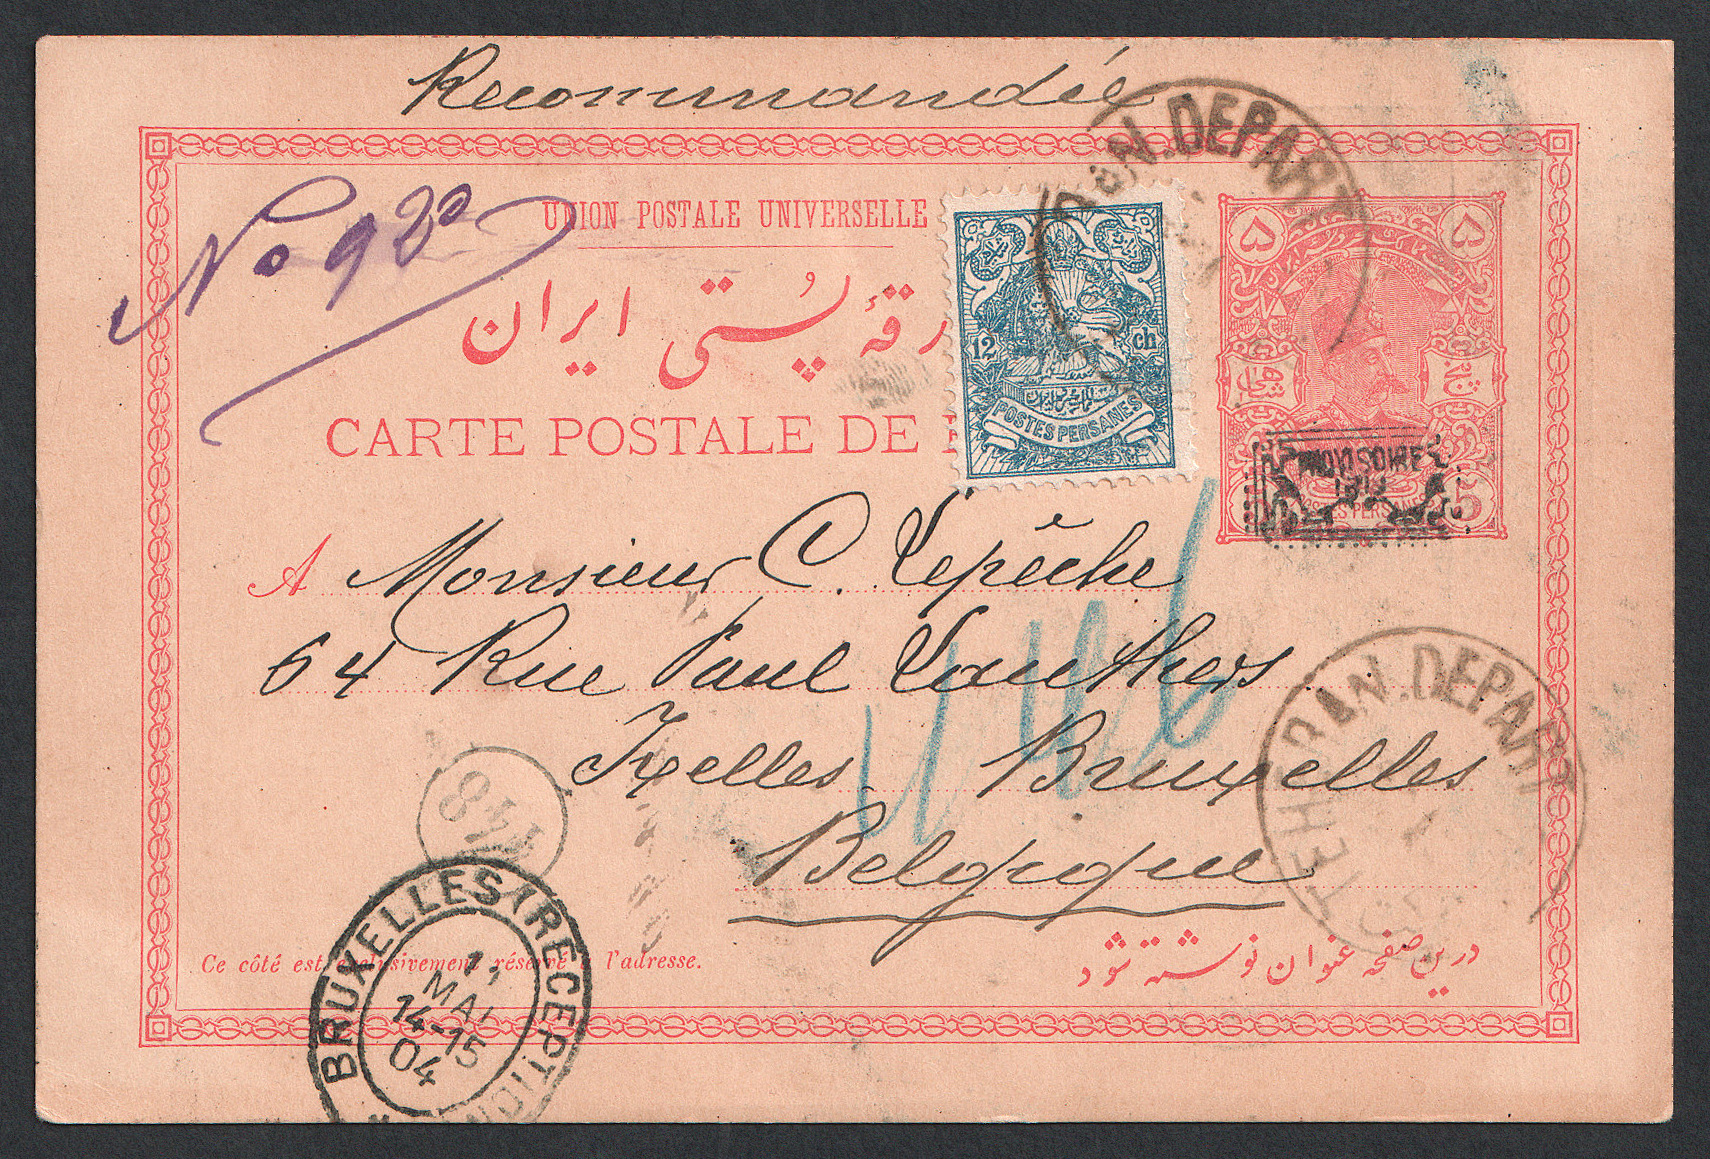 Recommandée
No 980
UNION POSTALE UNIVERSELLE
رقهٔ پستی ایران
CARTE POSTALE DE
12 ch
POSTES PERSANES
۵ ۵
PROVISOIRE
1319
POSTES PERSANES
5
TEHERAN.DEPART
A Monsieur C. Lepêche
64 Rue Paul Lauthers
Ixelles Bruxelles
Belgique
146
TEHERAN.DEPART
848
Ce côté est exclusivement réservé à l'adresse.
درین صفحه عنوان نوشته شود
BRUXELLES (RECEPTION
MAI
14-15
04